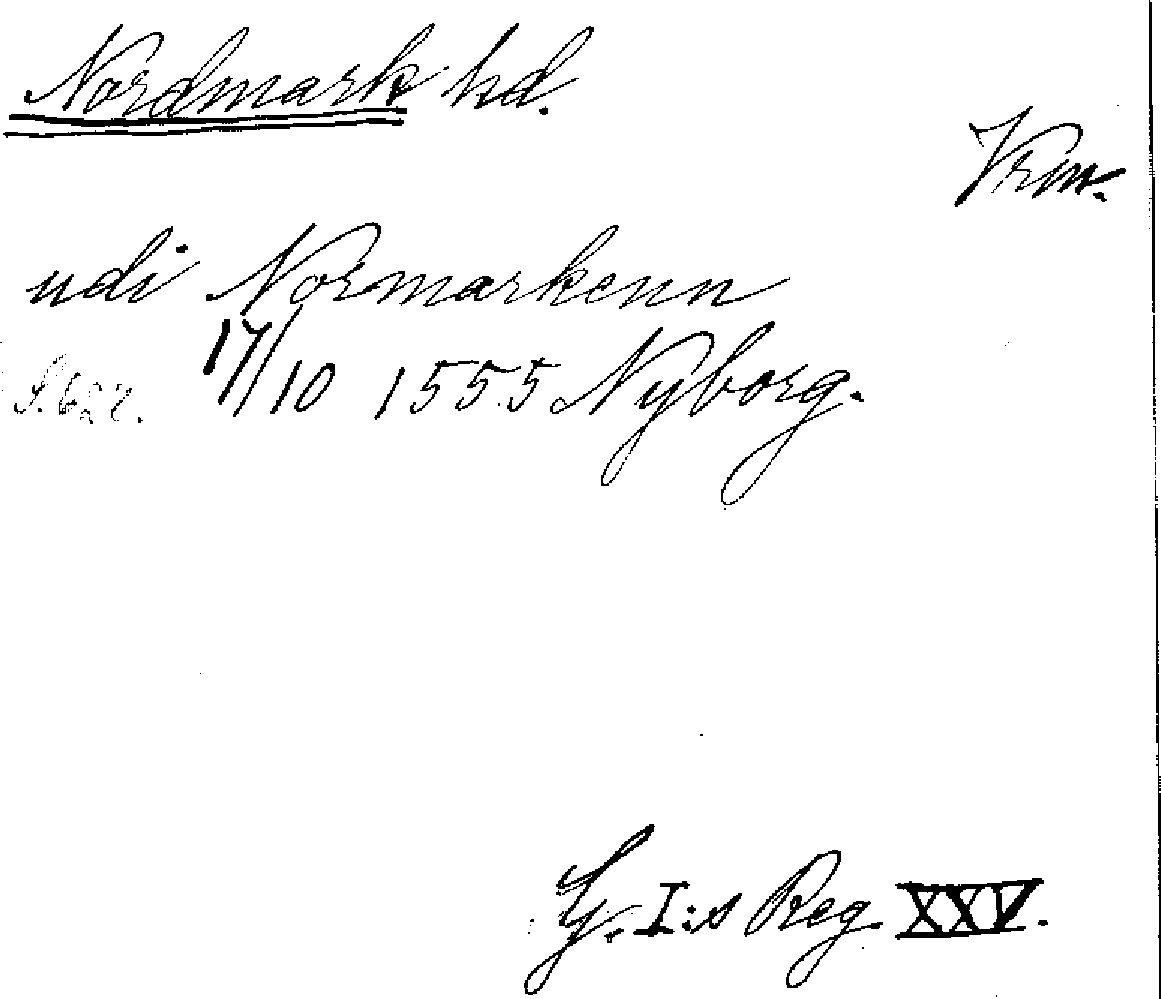 Nordmark hd.
Vrm.
udi Normarkenn
S. 627. 17/10 1555 Nyborg.
G. I:s Reg. XXV.